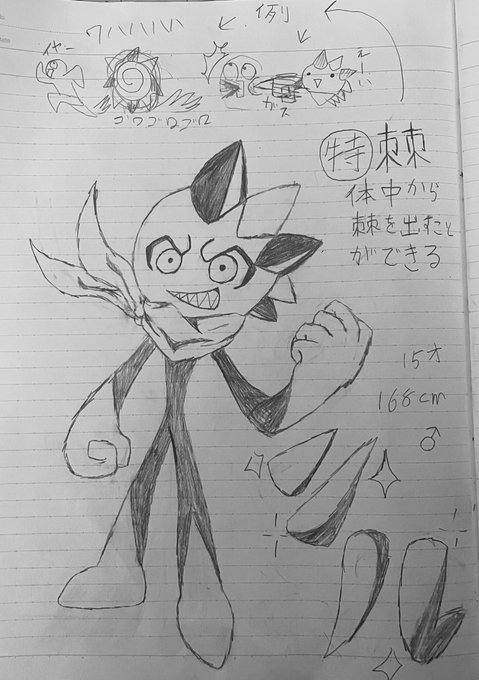 ワハハハハ
例
イヤー
えーい
ガス
ゴロゴロゴロ
特 棘
体中から
棘を出すこと
ができる
15才
168cm
♂
ソル